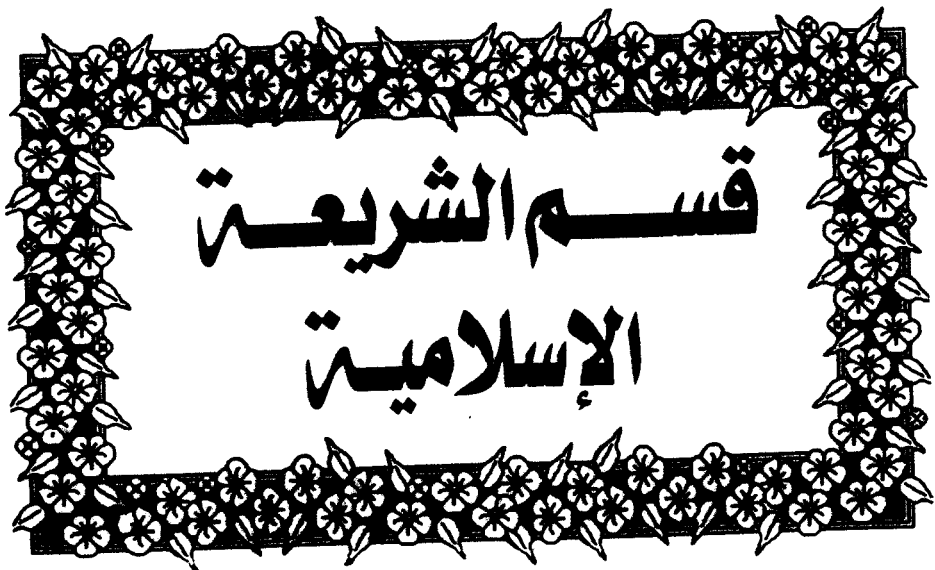 قسم الشريعة
الإسلامية